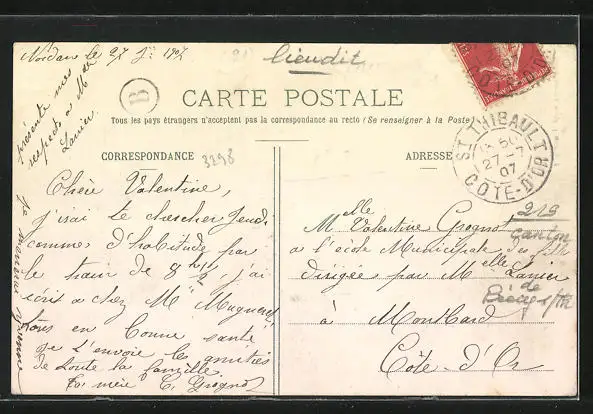 lieudit
Nordan le 27 J. 1907
B
CARTE POSTALE
Tous les pays étrangers n'acceptent pas la correspondance au recto (Se renseigner à la Poste)
présente mes
respects à Melle
Lanier
CORRESPONDANCE
3298
ADRESSE
ST THIBAULT
27 - 7
07
CÔTE-D'OR
Chère Valentine,
j'irai te chercher Jeudi
comme d'habitude par
le train de 8h 1/2, j'ai
écrit à chez Me Mugneret
tous en bonne santé
je t'envoie les amitiés
de toute la famille.
Ta mère C. Grognot
Melle Valentine Grognot
à l'école Municipale des filles
dirigée par Melle Lanier
à Montbard
Côte-d'Or
219
canton
de